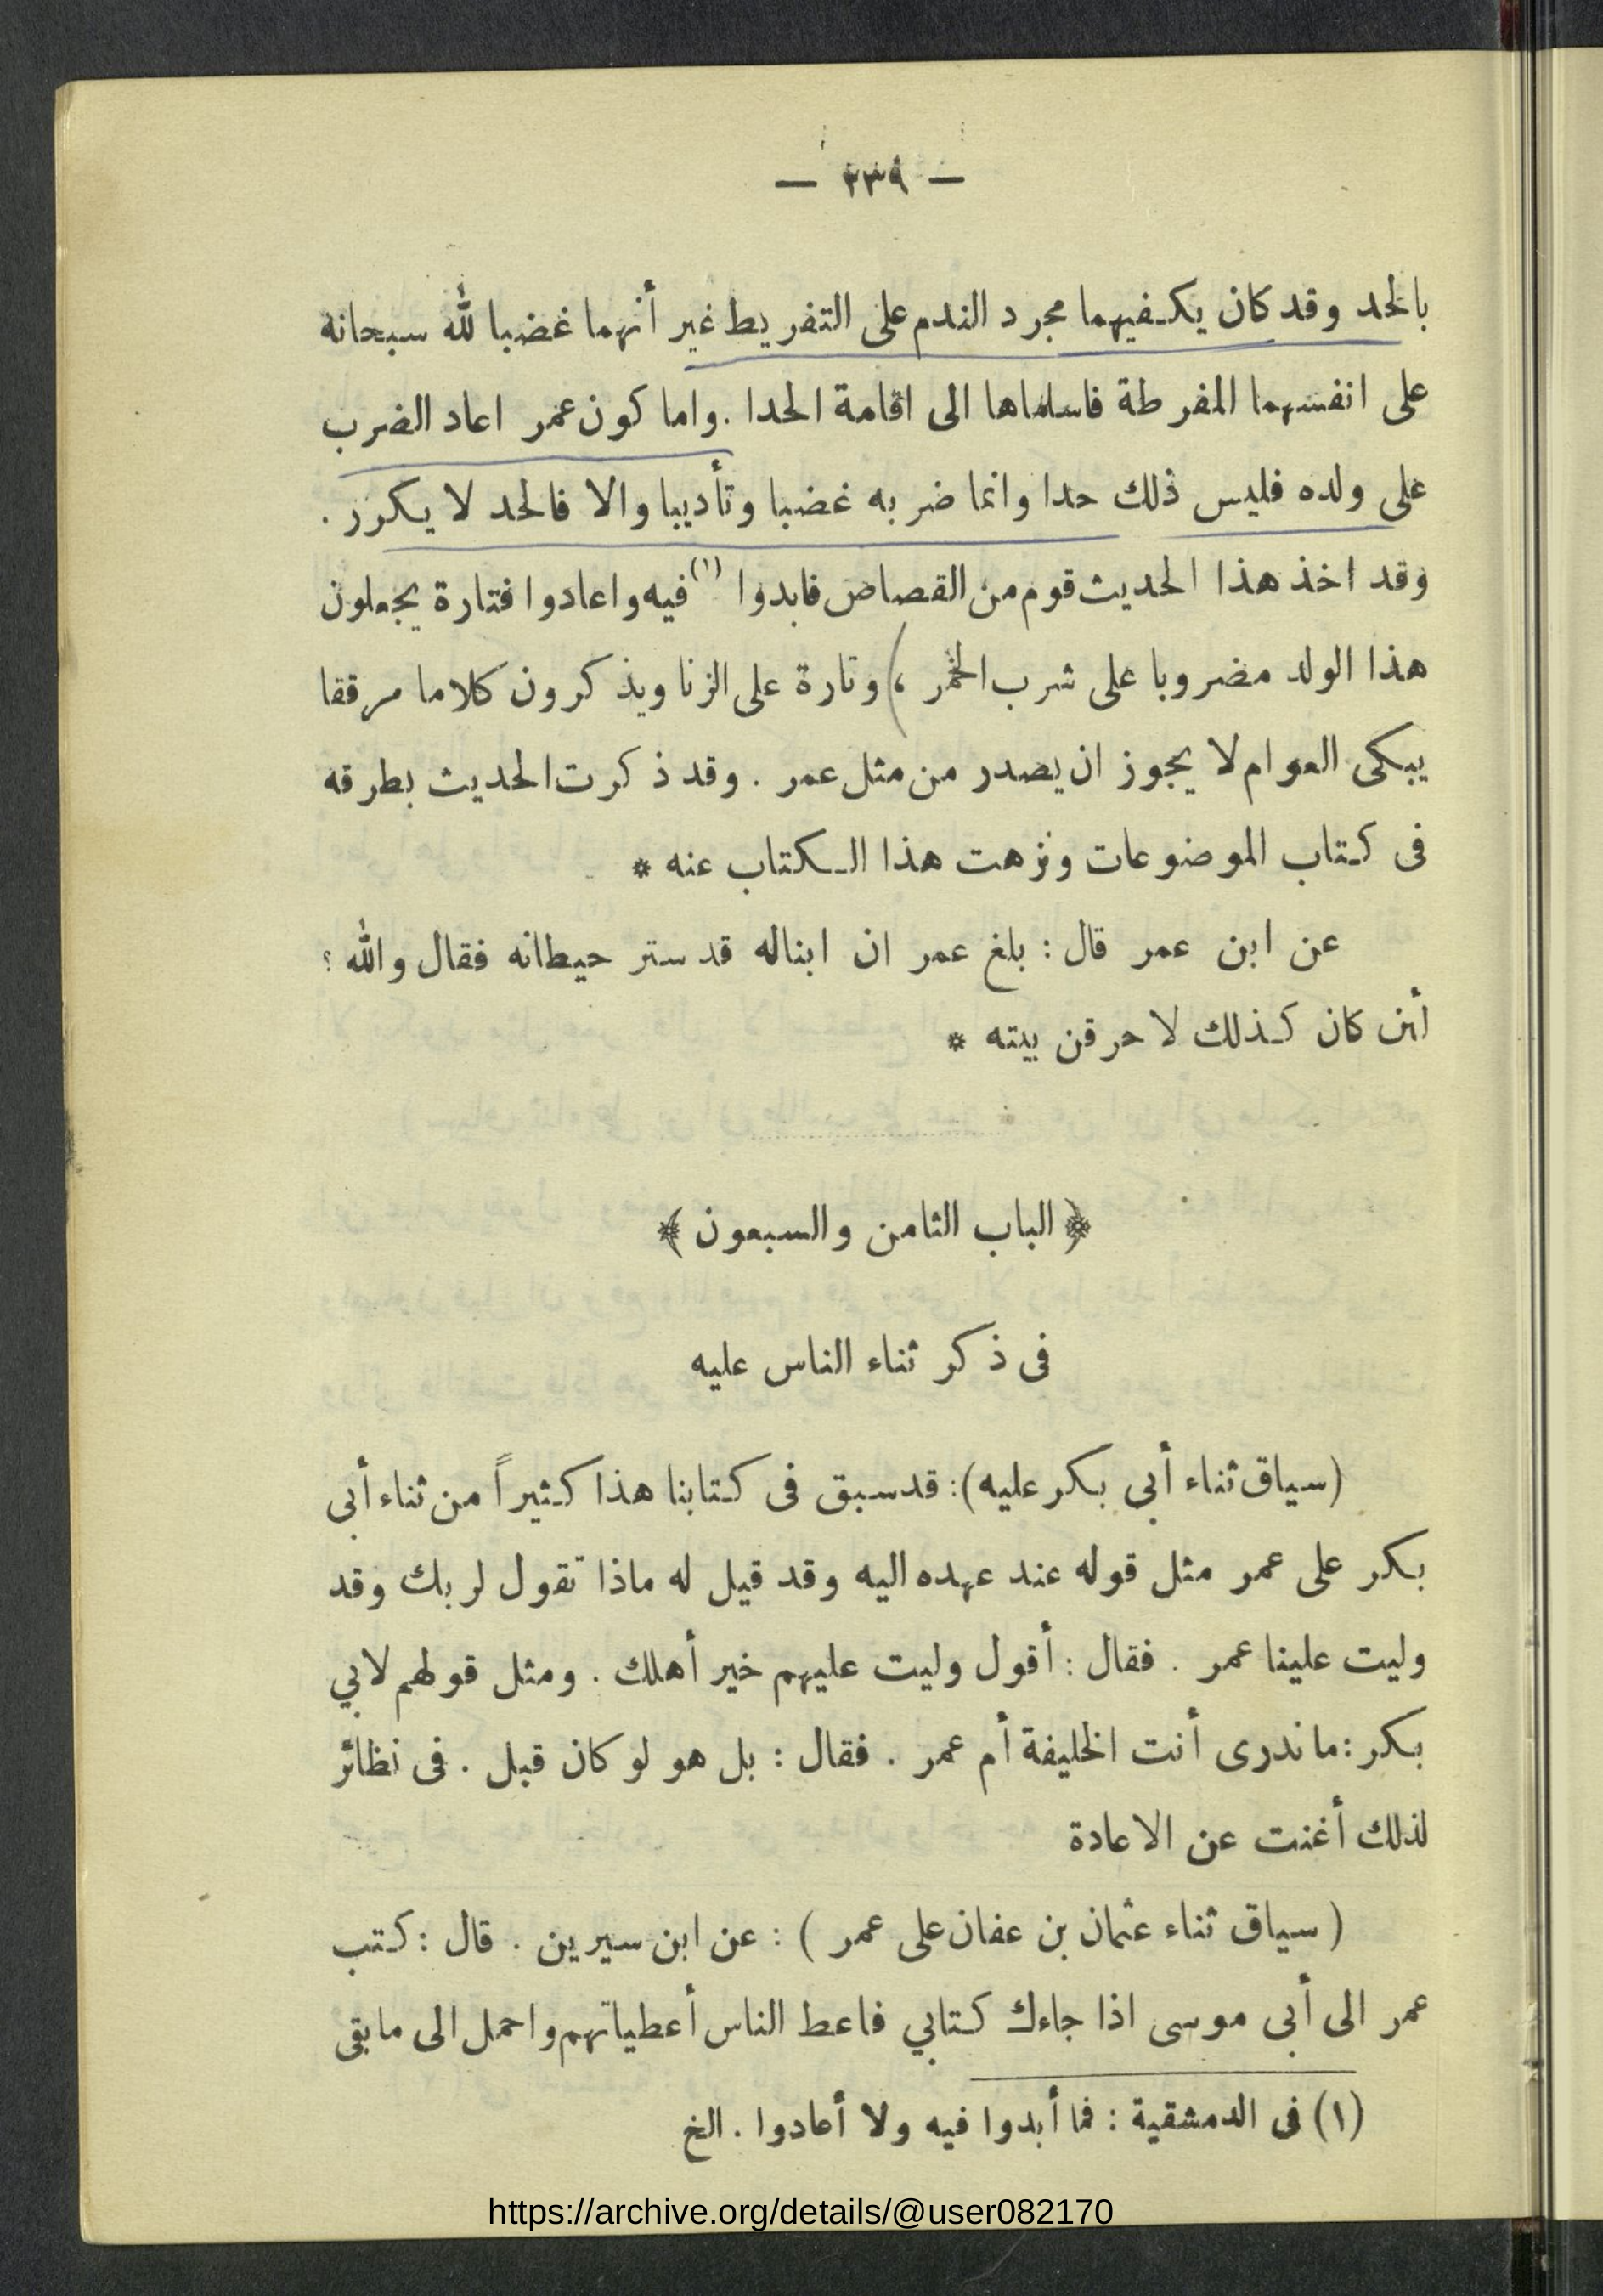 — ٢٣٩ —
بالحد وقد كان يكفيهما مجرد الندم على التفريط غير أنهما غضبا لله سبحانه
على انفسهما المفرطة فاسلماها الى اقامة الحدا . واما كون عمر اعاد الضرب
على ولده فليس ذلك حدا وانما ضربه غضبا وتأديبا والا فالحد لا يكرر .
وقد اخذ هذا الحديث قوم من القصاص فابدوا (١) فيه واعادوا فتارة يجعلون
هذا الولد مضروبا على شرب الخمر ، وتارة على الزنا ويذكرون كلاما مرققا
يبكى العوام لا يجوز ان يصدر من مثل عمر . وقد ذكرت الحديث بطرقه
فى كتاب الموضوعات ونزهت هذا الكتاب عنه *
عن ابن عمر قال : بلغ عمر ان ابنا له قد ستر حيطانه فقال والله ؟
أئن كان كذلك لاحرقن بيته *
﴿ الباب الثامن والسبعون ﴾
فى ذكر ثناء الناس عليه
(سياق ثناء أبي بكر عليه): قد سبق فى كتابنا هذا كثيراً من ثناء أبى
بكر على عمر مثل قوله عند عهده اليه وقد قيل له ماذا تقول لربك وقد
وليت علينا عمر . فقال : أقول وليت عليهم خير أهلك . ومثل قولهم لابي
بكر : ما ندرى أنت الخليفة أم عمر . فقال : بل هو لو كان قبل . فى نظائر
لذلك أغنت عن الاعادة
( سياق ثناء عثمان بن عفان على عمر ) : عن ابن سيرين . قال : كتب
عمر الى أبى موسى اذا جاءك كتابي فاعط الناس أعطياتهم واحمل الى ما بقى
(١) فى الدمشقية : فما أبدوا فيه ولا أعادوا . الخ
https://archive.org/details/@user082170